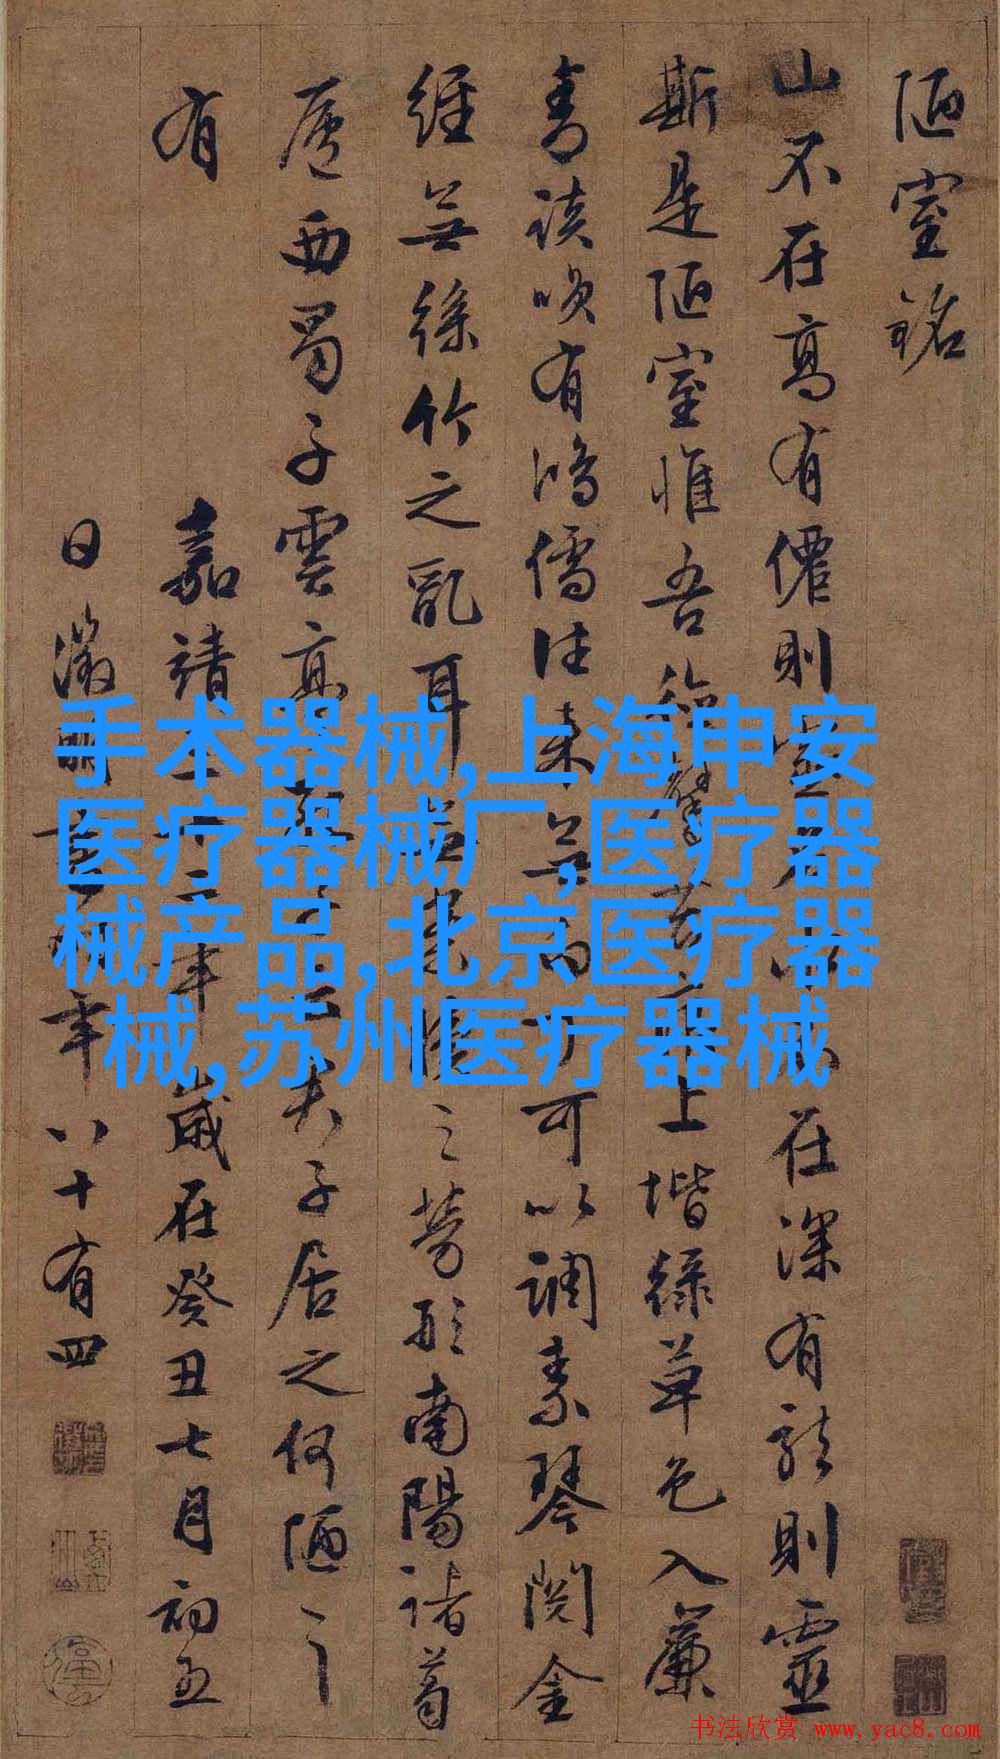 陋室銘
山不在高有僊則在深有龍則靈
斯是陋室惟吾德馨苔上堦綠草色入簾
青談咲有鴻儒往來無白可以調素琴閱金
經無絲竹之亂耳之勞形南陽諸葛
廬西蜀子雲亭夫子居之何陋之
有
嘉靖年歲在癸丑七月初五
日徵明年八十有四
手术器械,上海申安
医疗器械厂,医疗器
械产品,北京医疗器
械,苏州医疗器械
书法欣赏 www.yac8.com